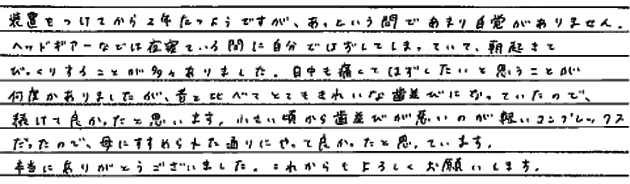 装置をつけてから2年たつようですが、あっという間であまり自覚がありません。
ヘッドギアーなどは夜寝ている間に自分ではずしてしまっていて、朝起きて
びっくりすることが多々ありました。日中も痛くてはずしたいと思うことが
何度かありましたが、昔と比べてとてもきれいな歯並びになっていたので、
続けて良かったと思います。小さい頃から歯並びが悪いのが軽いコンプレックス
だったので、母にすすめられた通りにやって良かったと思っています。
本当にありがとうございました。これからもよろしくお願いします。